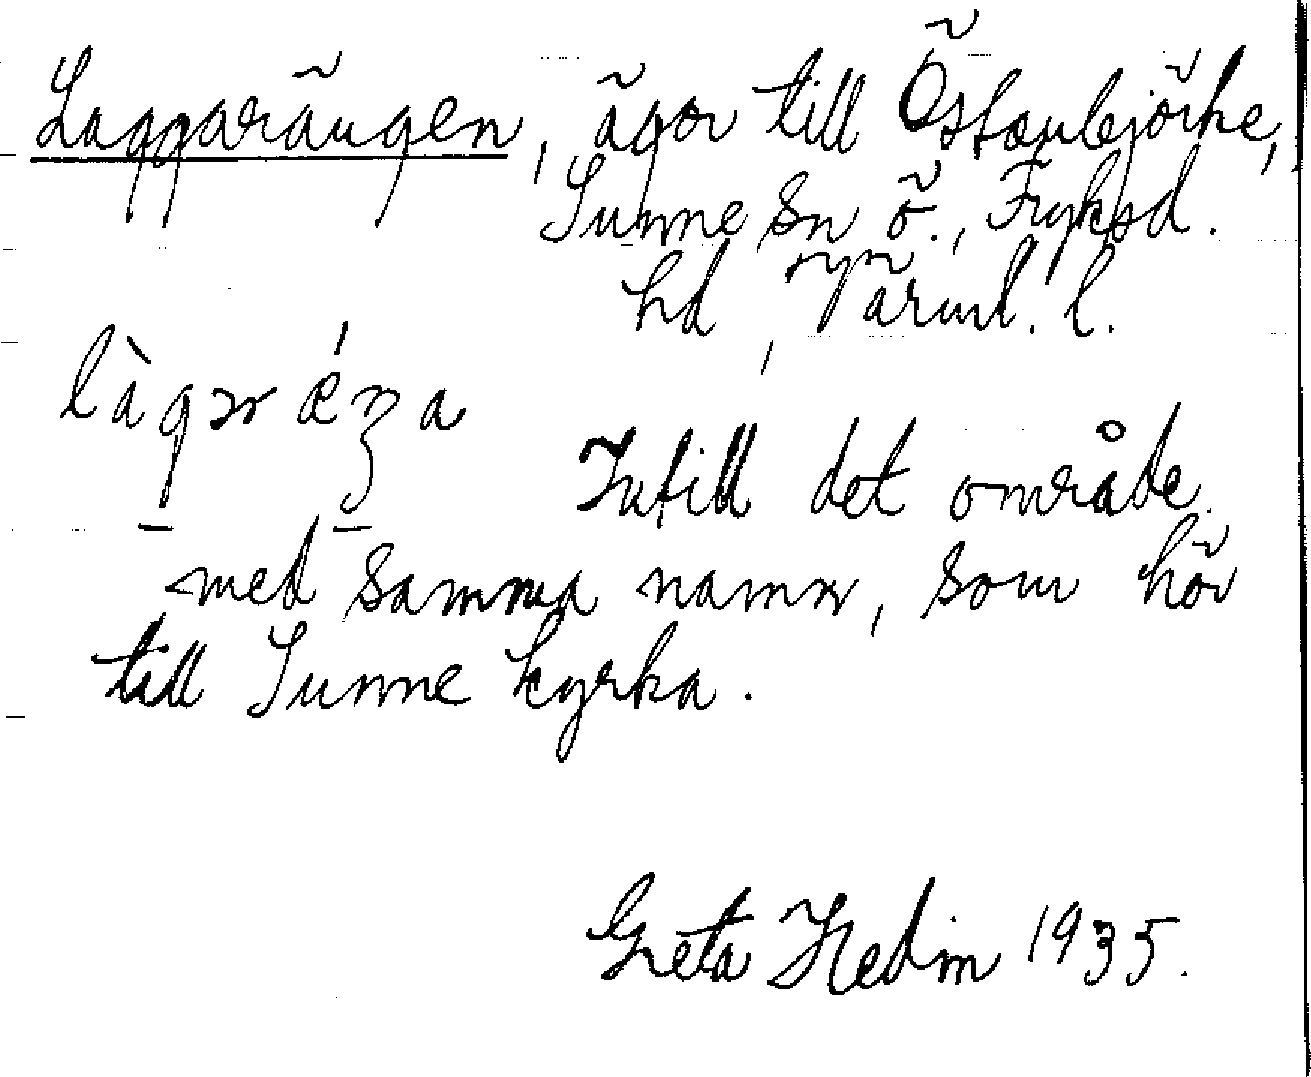 Laggarängen, ägor till Östanbjörke,
Sunne sn ö., Fryksd.
hd, Värml. l.
Intill det område
med samma namn, som hör
till Sunne kyrka.
Greta Hedin 1935.